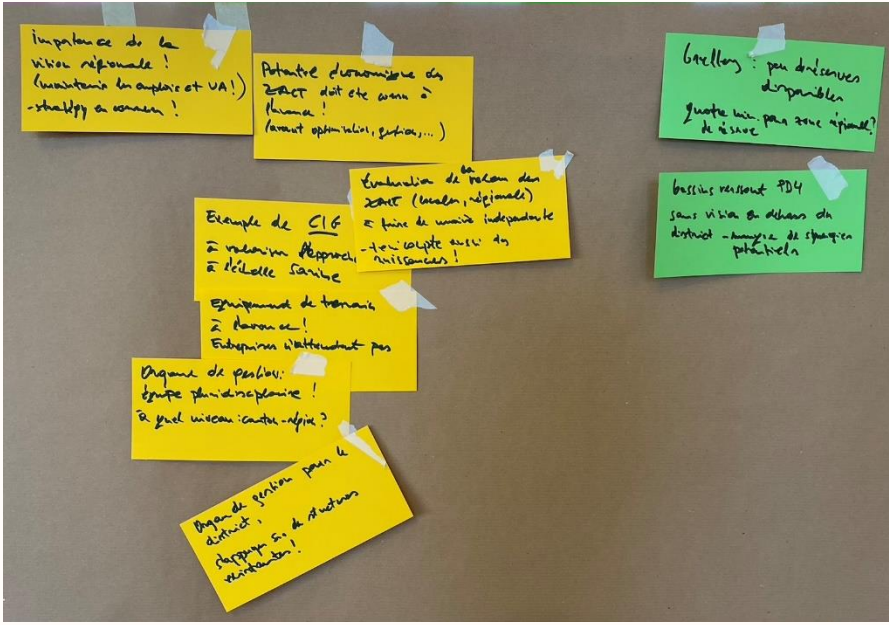 Importance de la
vision régionale !
(maintenir les emplois et VA!)
-stratégie en commun !
Potentiel économique des
ZACT doit être connu à
l'avance !
(avant optimisation, gestion, ...)
Évaluation de la vocation des
ZACT (locales, régionale)
à faire de manière indépendante
-tenir compte aussi des
nuisances !
Exemple de CIG
à valoriser l'approche
à l'échelle Sarine
Equipement de terrain
à l'avance !
Entreprises n'attendent pas
Organe de gestion:
équipe pluridisciplinaire !
à quel niveau: canton-région?
Organe de gestion pour le
district,
s'appuyer sur de structures
existantes !
: peu de réserves
disponibles
Quota min. pour zone régionale?
de réserve
bassins versant PD4
sans vision en dehors du
district - manque de synergies
potentiels